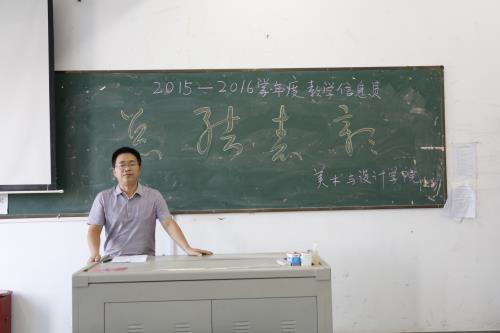 2015—2016学年度教学信息员
总结表彰
美术与设计学院